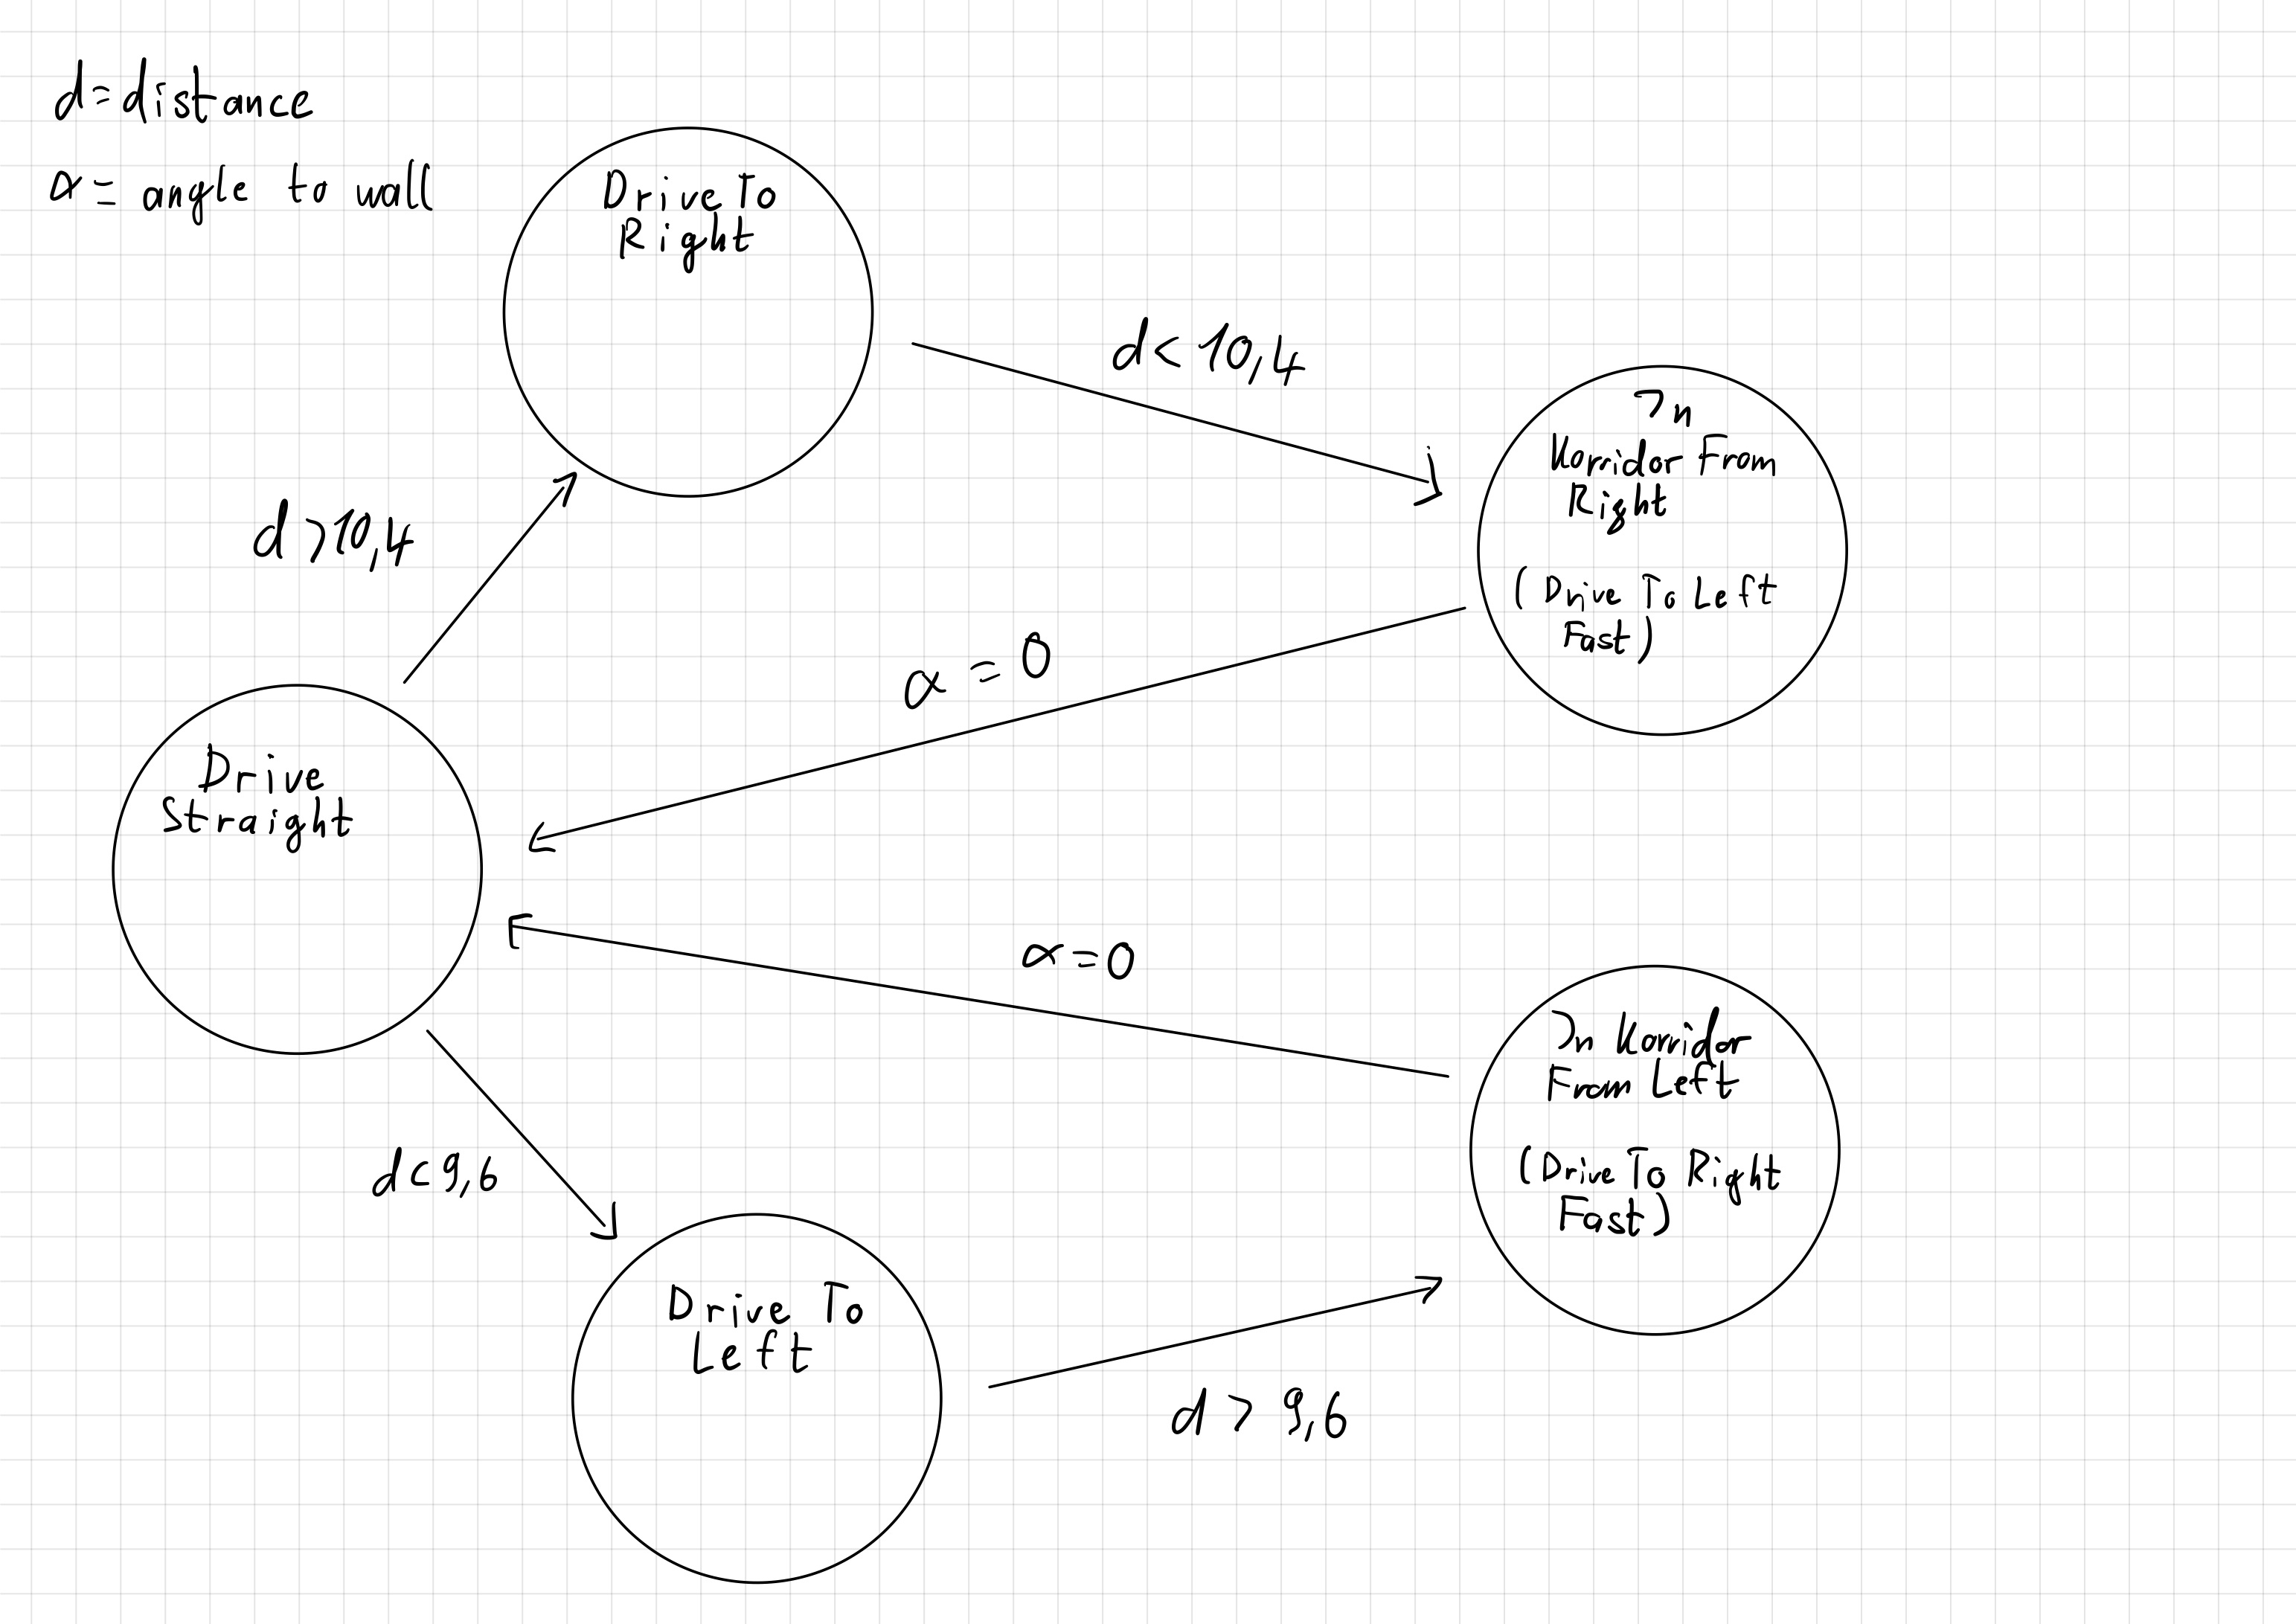 d = distance
α = angle to wall
Drive To
Right
d < 10,4
In
Korridor From
Right
(Drive To Left
Fast)
d > 10,4
α = 0
Drive
Straight
α = 0
In Korridor
From Left
(Drive To Right
Fast)
d < 9,6
Drive To
Left
d > 9,6